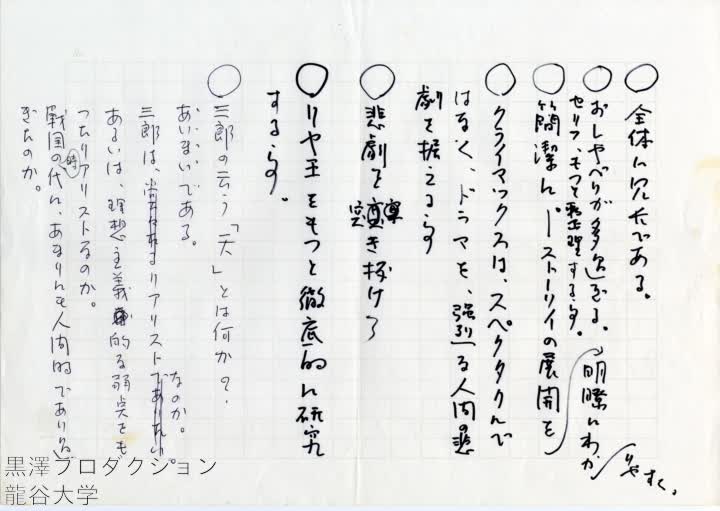 ○全体に冗長である。
○おしゃべりが多過ぎる。
セリフ、もつと整理する事。
○簡潔に―ストーリイの展開を
明瞭にわか
りやすく。
○クライマックスは、スペクタクルで
はなく、ドラマを、強烈な人間の悲
劇を据える事
○悲劇を突き抜けろ
○リヤ王をもつと徹底的に研究
する事。
○三郎の云う「天」とは何か？
あいまいである。
三郎は、リアリストなのか。
あるいは、理想主義的な弱点をも
つたリアリストなのか。
戦国の時代に、あまりにも人間的であり過
ぎたのか。
黒澤プロダクション
龍谷大学